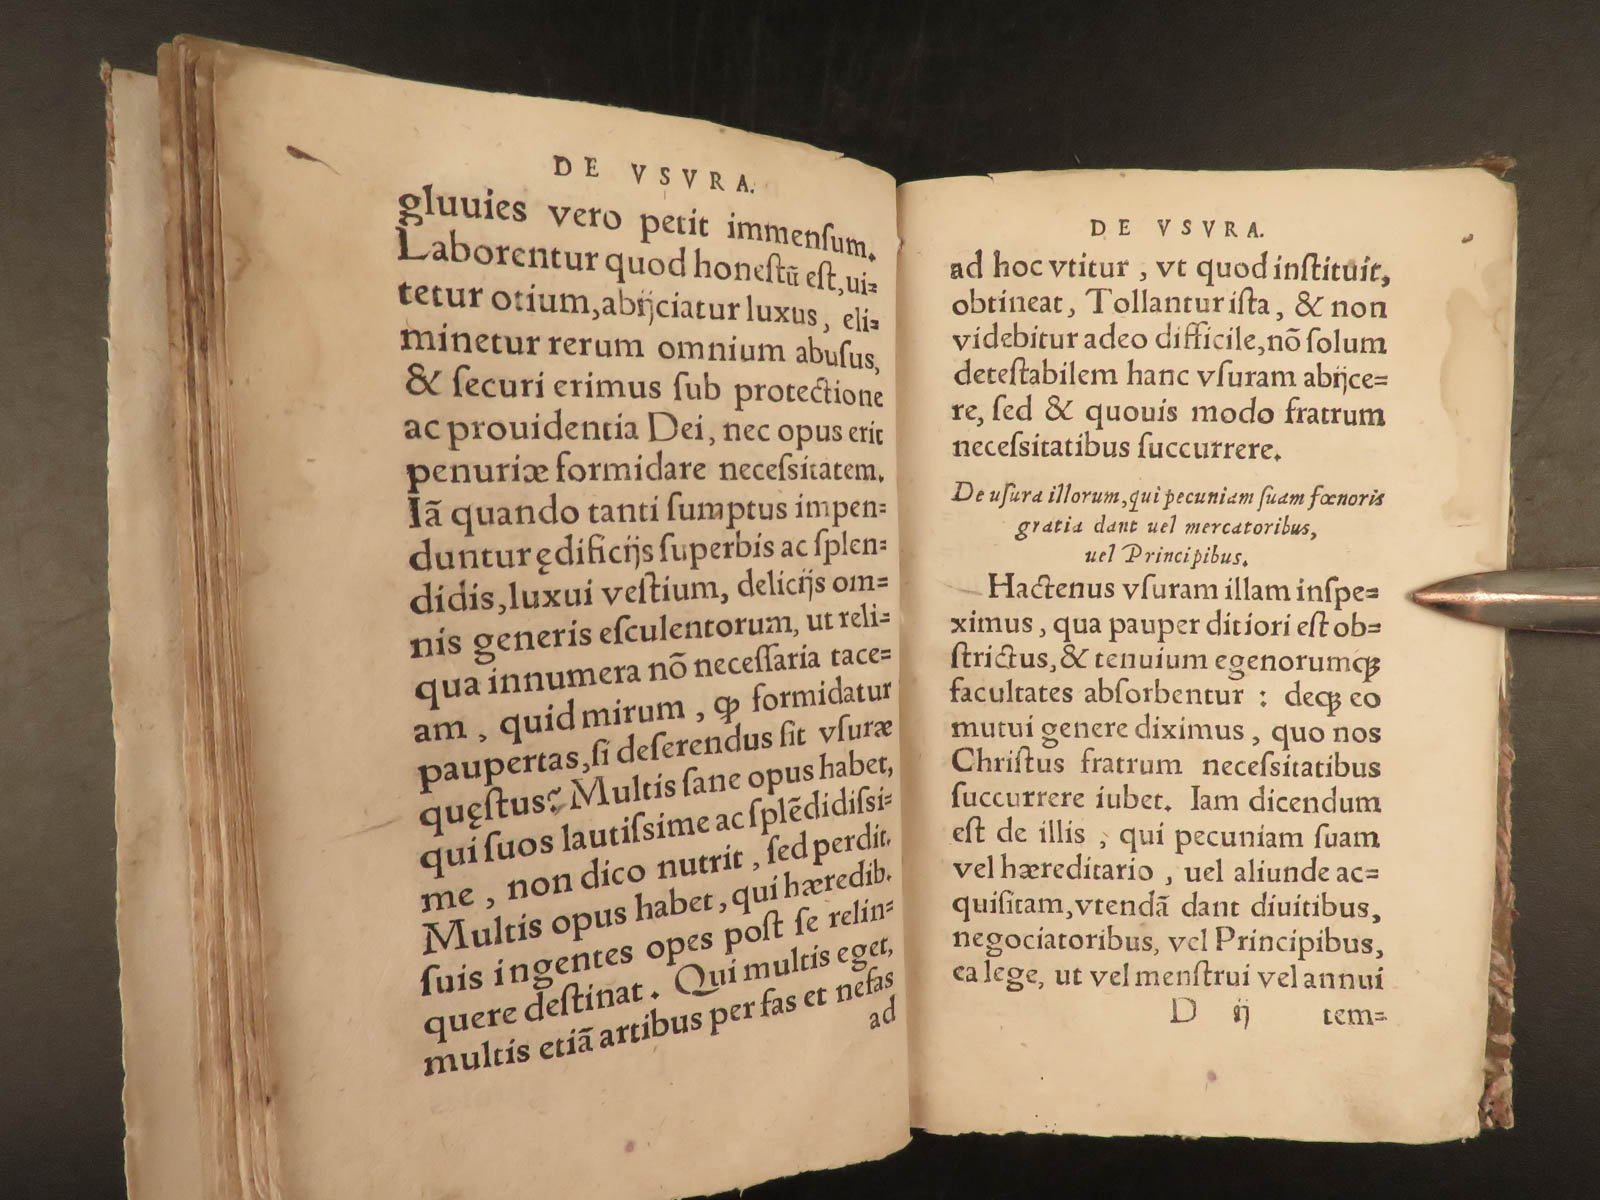 DE VSVRA.
gluuies vero petit immensum.
Laborentur quod honestū est, ui=
tetur otium, abijciatur luxus, eli=
minetur rerum omnium abusus,
& securi erimus sub protectione
ac prouidentia Dei, nec opus erit
penuriæ formidare necessitatem.
Iā quando tanti sumptus impen=
duntur ędificijs superbis ac splen=
didis, luxui vestium, delicijs om=
nis generis esculentorum, ut reli=
qua innumera nō necessaria tace=
am, quid mirum, ꝙ formidatur
paupertas, si deserendus sit vsuræ
quęstus? Multis sane opus habet,
qui suos lautissime ac splēdidissi=
me, non dico nutrit, sed perdit.
Multis opus habet, qui hæredib.
suis ingentes opes post se relin=
quere destinat. Qui multis eget,
multis etiā artibus per fas et nefas
ad
DE VSVRA.
ad hoc vtitur, vt quod instituit,
obtineat, Tollantur ista, & non
videbitur adeo difficile, nō solum
detestabilem hanc vsuram abijce=
re, sed & quouis modo fratrum
necessitatibus succurrere.
De usura illorum, qui pecuniam suam fœnoris
gratia dant uel mercatoribus,
uel Principibus.
Hactenus vsuram illam inspe=
ximus, qua pauper ditiori est ob=
strictus, & tenuium egenorumqꝫ
facultates absorbentur : deqꝫ eo
mutui genere diximus, quo nos
Christus fratrum necessitatibus
succurrere iubet. Iam dicendum
est de illis, qui pecuniam suam
vel hæreditario, uel aliunde ac=
quisitam, vtendā dant diuitibus,
negociatoribus, vel Principibus,
ea lege, ut vel menstrui vel annui
D ij tem=